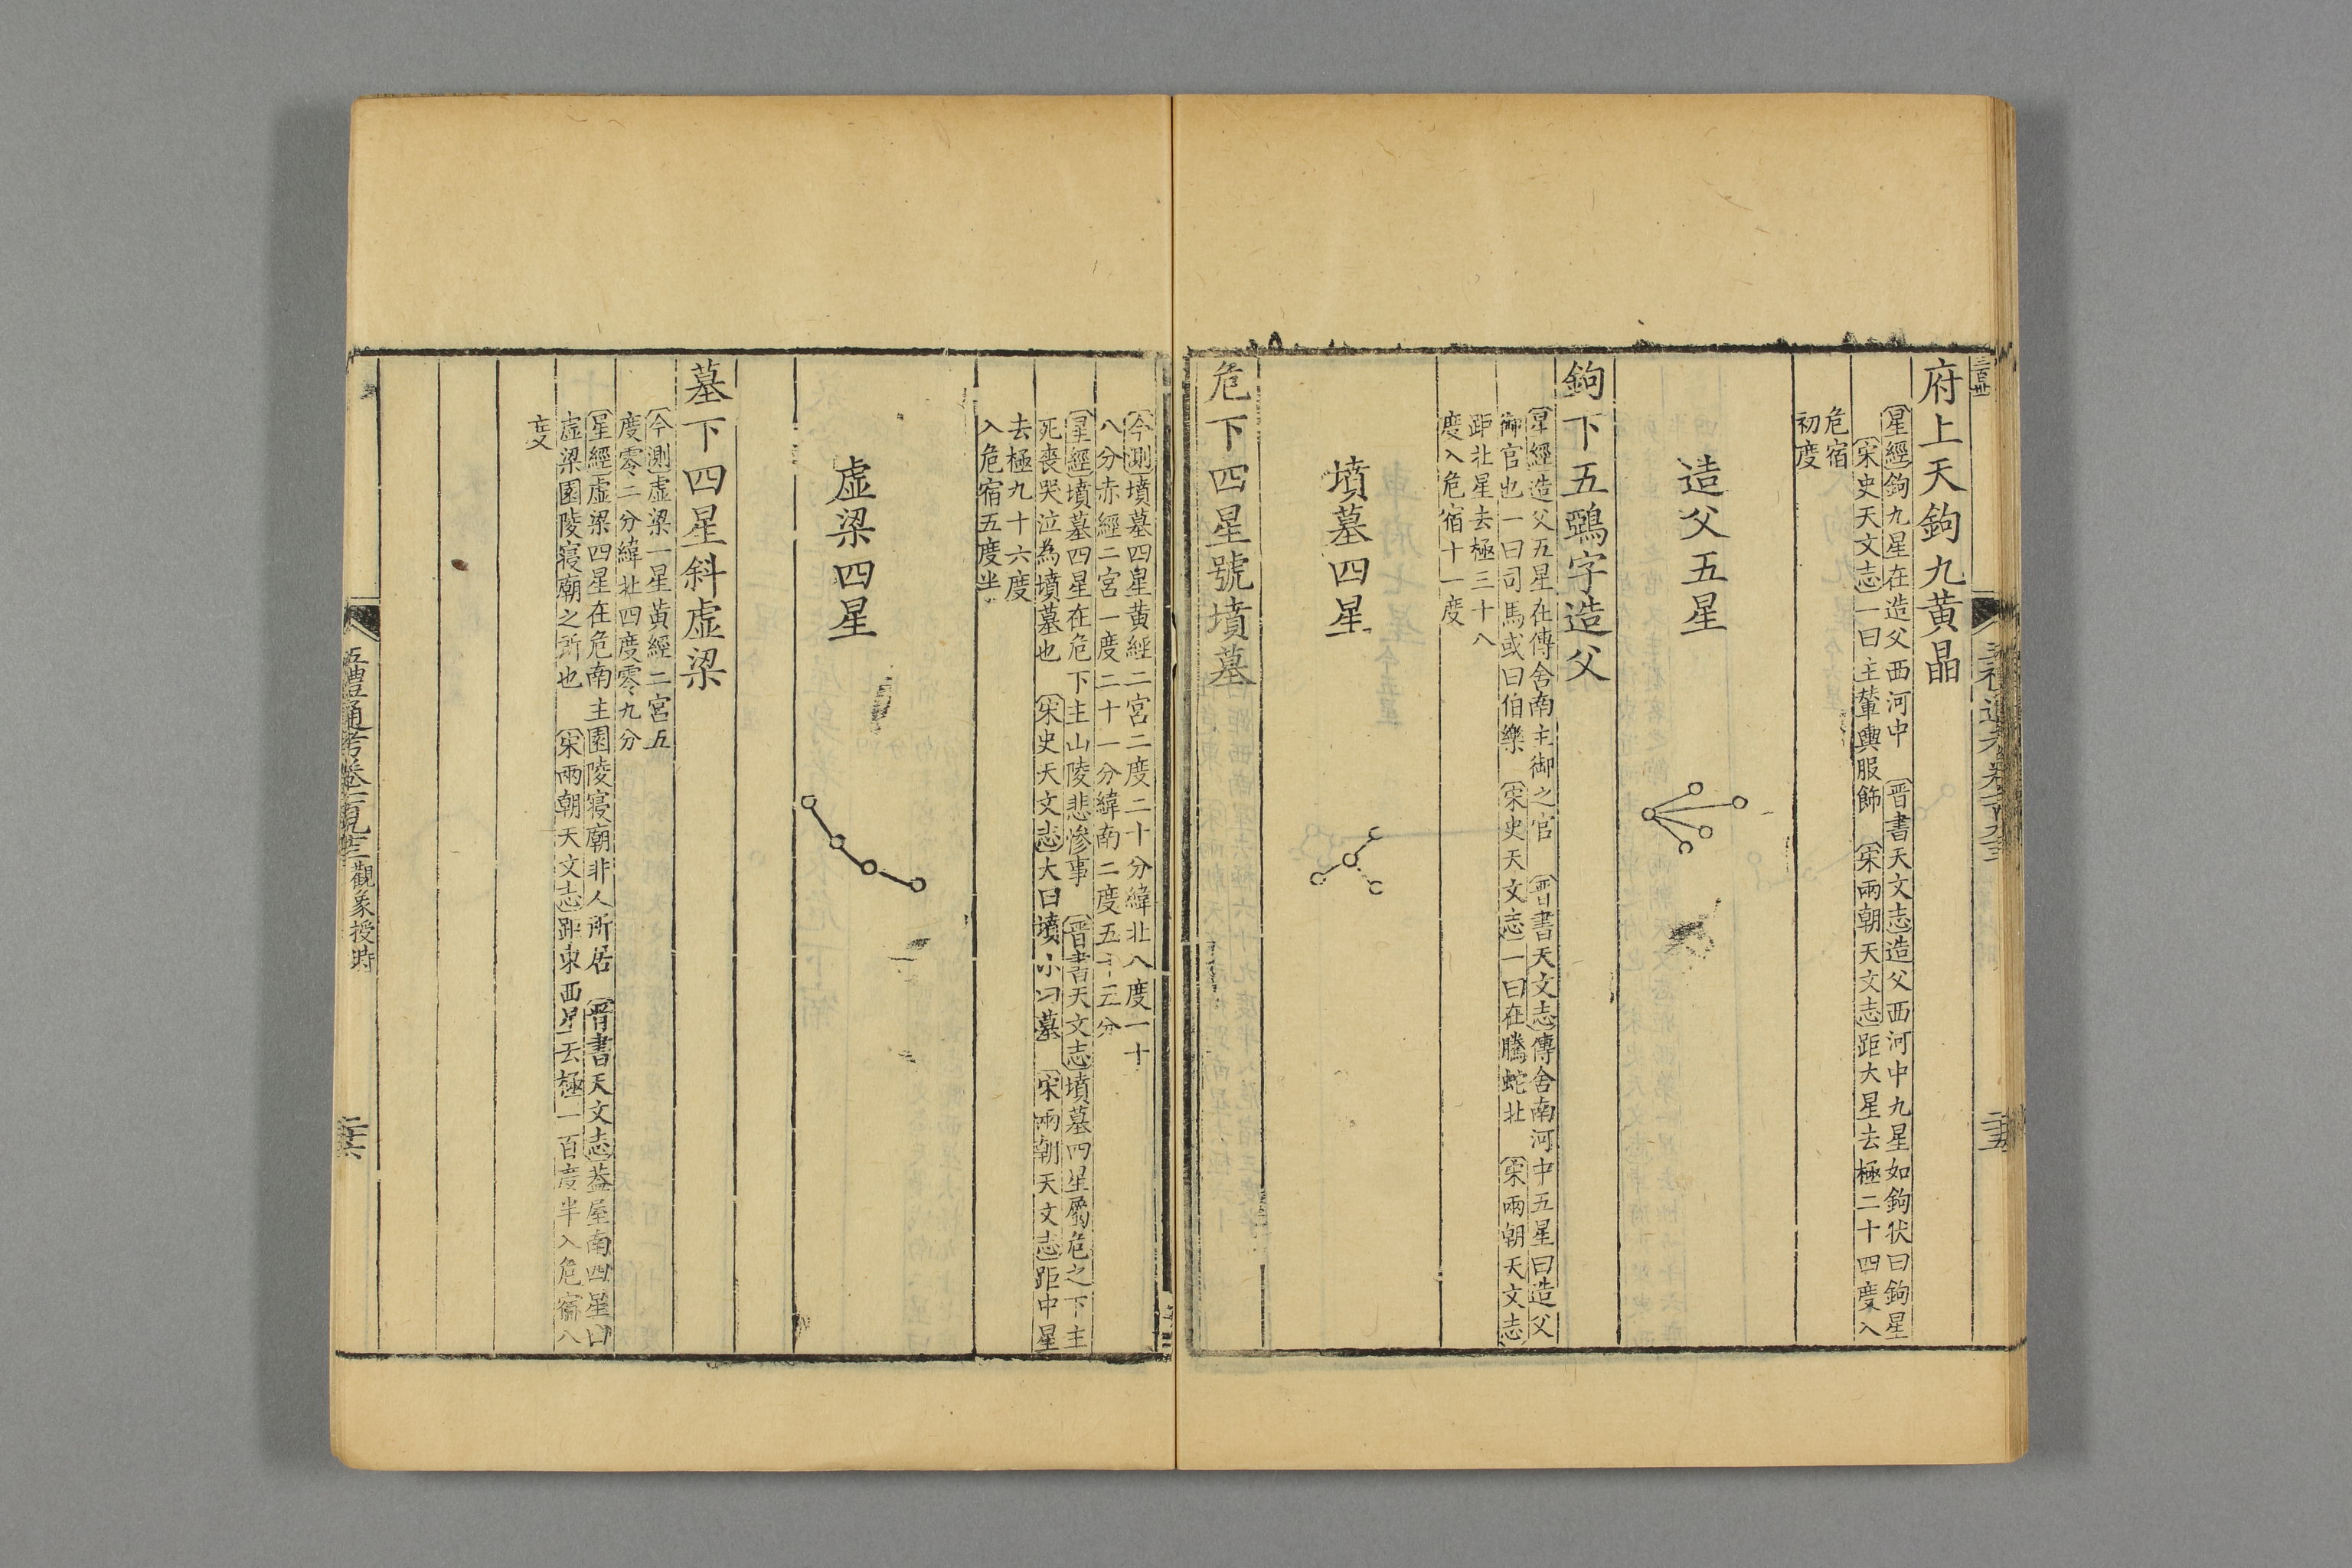 府上天鉤九黃晶
星經鉤九星在造父西河中　晉書天文志造父西河中九星如鉤伏曰鉤星
宋史天文志一曰主輦輿服飾　宋兩朝天文志距大星去極二十四度入
危宿
初度
造父五星
鉤下五鵶字造父
星經造父五星在傳舍南主御之官　晉書天文志傳舍南河中五星曰造父
御官也一曰司馬或曰伯樂　宋史天文志一曰在騰蛇北　宋兩朝天文志
距北星去極三十八
度入危宿十一度
墳墓四星
危下四星號墳墓
今測墳墓四星黃經二宮二度二十分緯北八度一十
八分赤經二宮一度二十一分緯南二度五十五分
星經墳墓四星在危下主山陵悲慘事　晉書天文志墳墓四星屬危之下主
死喪哭泣為墳墓也　宋史天文志大曰墳小曰墓　宋兩朝天文志距中星
去極九十六度
入危宿五度半
虛梁四星
墓下四星斜虛梁
今測虛梁一星黃經二宮五
度零二分緯北四度零九分
星經虛梁四星在危南主園陵寢廟非人所居　晉書天文志蓋屋南四星曰
虛梁園陵寢廟之所也　宋兩朝天文志距東西星去極一百度半入危宿八
度
五禮通考卷一百九十三　觀象授時
二十六